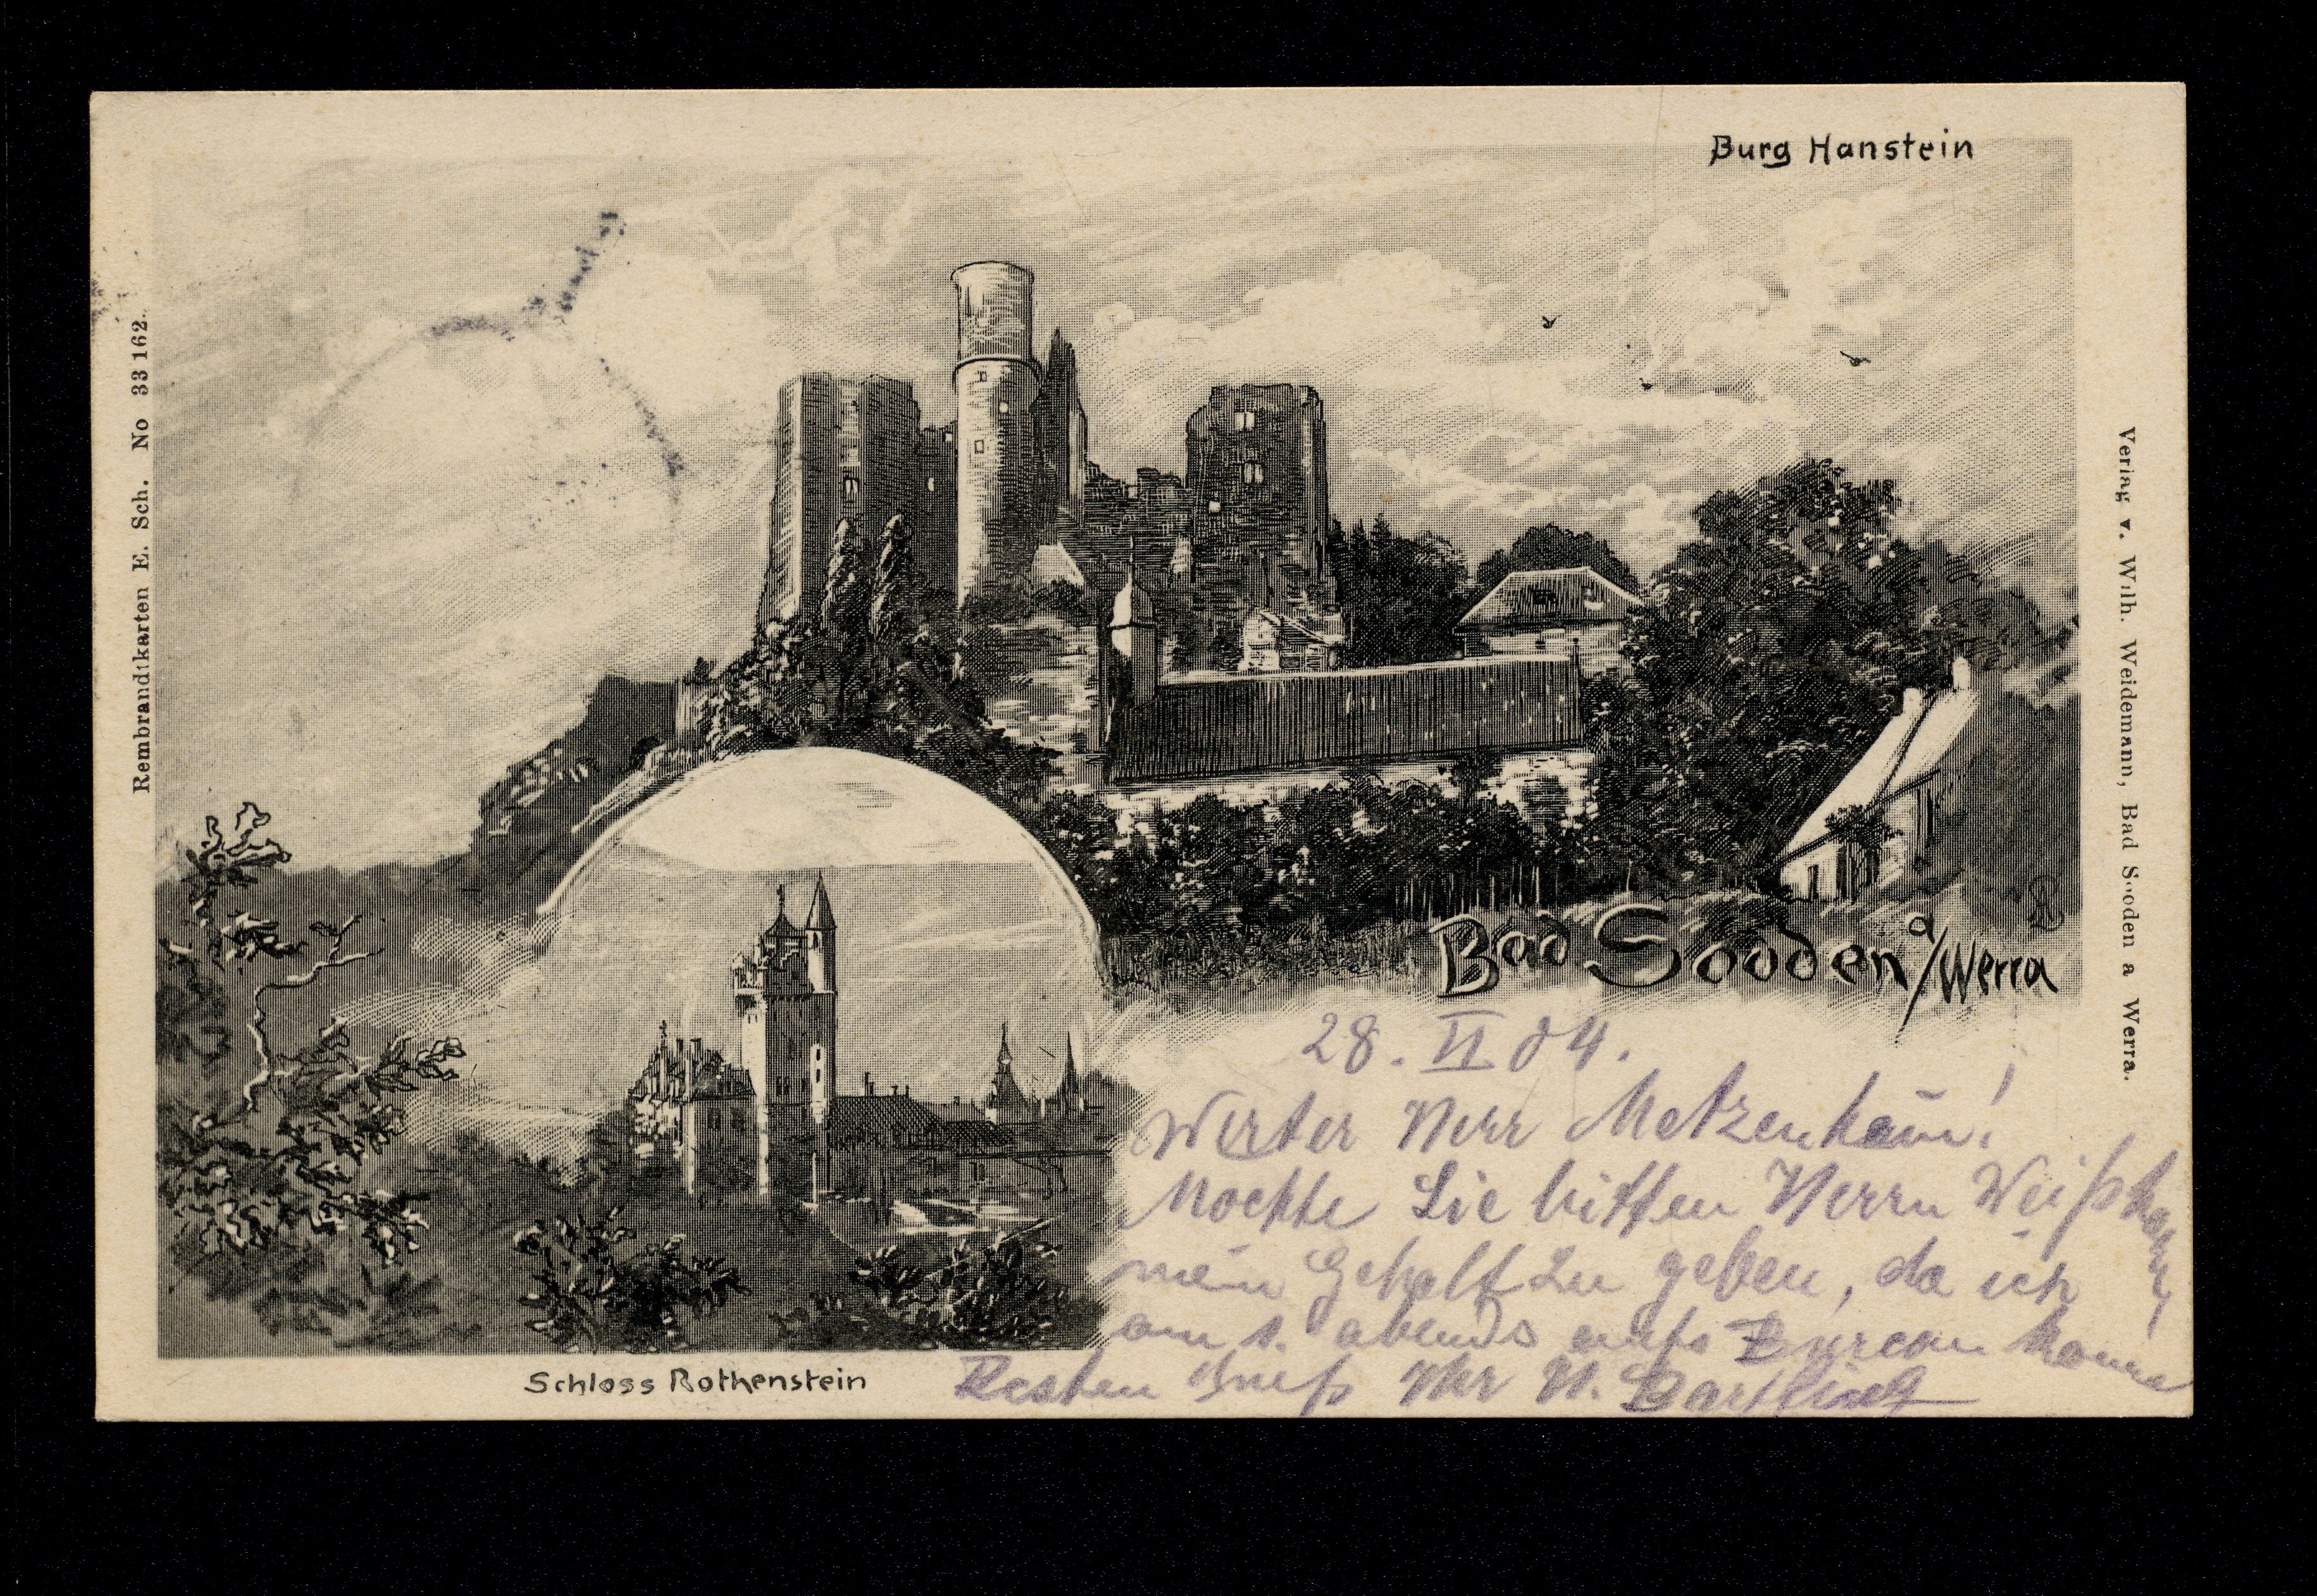 Burg Hanstein
Rembrandtkarten E. Sch. No 33162.
Verlag v. Wilh. Weidemann, Bad Sooden a Werra.
Bad Sooden a/Werra
28. VI 04.
Werter Herr Metzenhaūn!
Mochte Sie bitten Herrn
mein Gehalt zu geben, da ich
am 1. abends aufs Bureau komme
Besten Gruß Ihr H.
Schloss Rothenstein